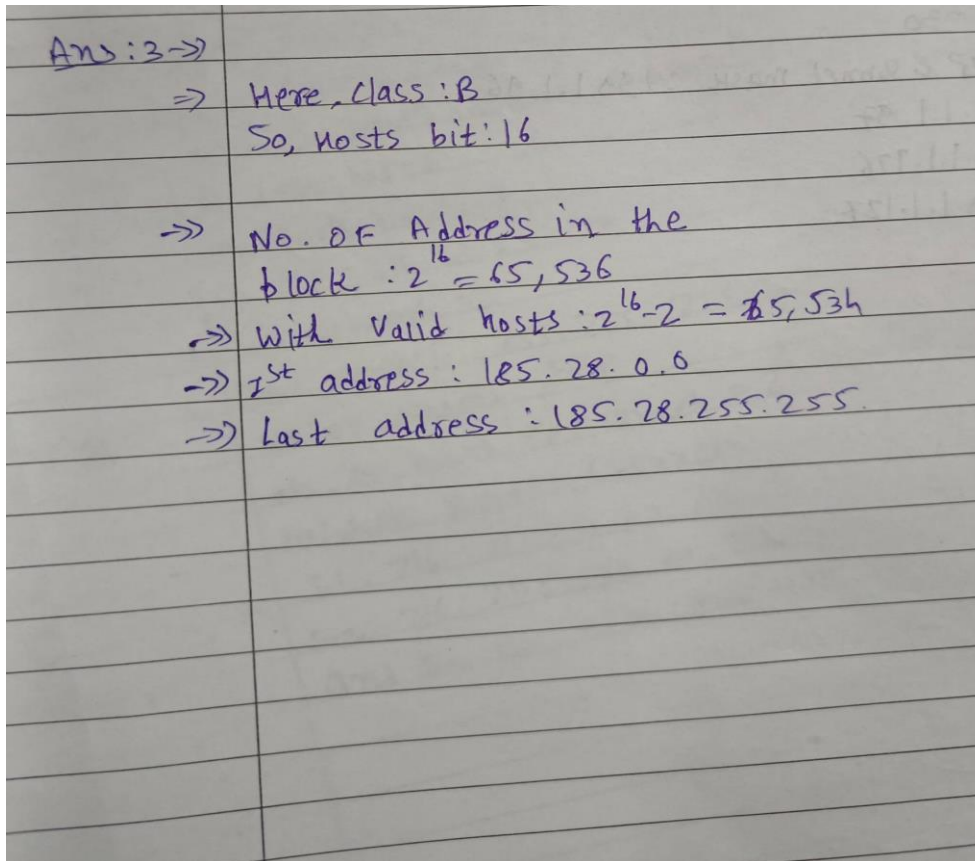 Ans:3->>
=> Here, Class : B
So, Hosts bit: 16
->> No. OF Address in the
block : 2^16 = 65,536
->> With Valid hosts : 2^16-2 = 65,534
->> Ist address : 185. 28. 0. 0
->> Last address : 185. 28. 255. 255.